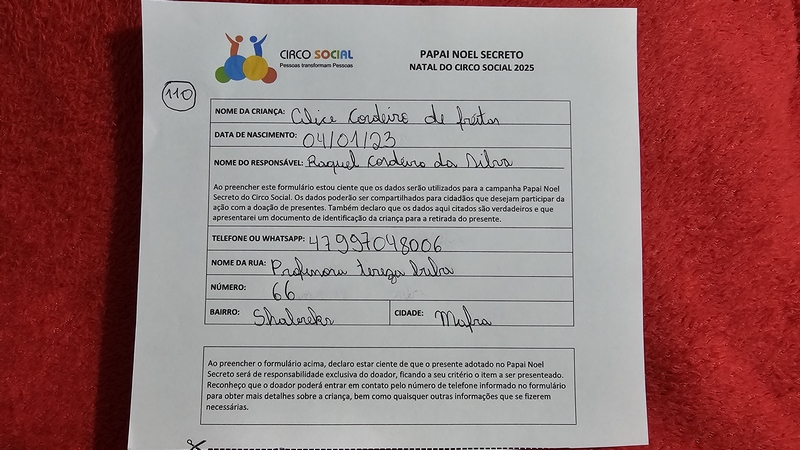 CIRCO SOCIAL
Pessoas transformam Pessoas
PAPAI NOEL SECRETO
NATAL DO CIRCO SOCIAL 2025
110
NOME DA CRIANÇA: Clice Cordeiro de freitas
DATA DE NASCIMENTO: 04/01/23
NOME DO RESPONSÁVEL: Raquel Cordeiro da Silva
Ao preencher este formulário estou ciente que os dados serão utilizados para a campanha Papai Noel
Secreto do Circo Social. Os dados poderão ser compartilhados para cidadãos que desejam participar da
ação com a doação de presentes. Também declaro que os dados aqui citados são verdadeiros e que
apresentarei um documento de identificação da criança para a retirada do presente.
TELEFONE OU WHATSAPP: 47997048006
NOME DA RUA: Professora tereza
NÚMERO: 66
BAIRRO: CIDADE: Mafra
Ao preencher o formulário acima, declaro estar ciente de que o presente adotado no Papai Noel
Secreto será de responsabilidade exclusiva do doador, ficando a seu critério o item a ser presenteado.
Reconheço que o doador poderá entrar em contato pelo número de telefone informado no formulário
para obter mais detalhes sobre a criança, bem como quaisquer outras informações que se fizerem
necessárias.